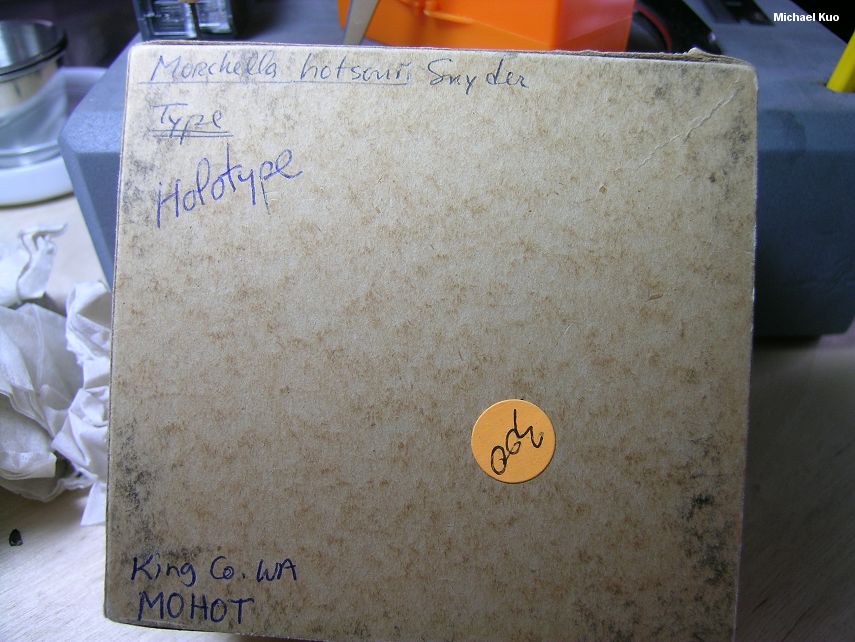 Michael Kuo
Morchella hotsonii Snyder
Type
Holotype
King Co. WA
MOHOT